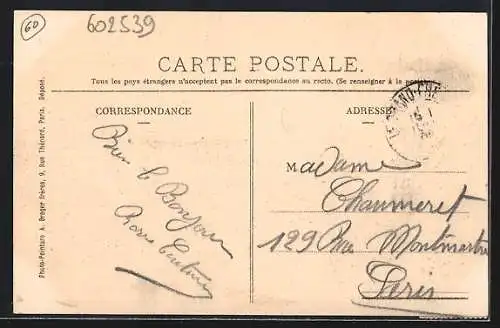 60
602539
CARTE POSTALE.
Tous les pays étrangers n'acceptent pas la correspondance au recto. (Se renseigner à la
CORRESPONDANCE
ADRESSE
Photo-Peinture A. Breger frères, 9, Rue Thénard, Paris. Déposé.
Bien le Bonjour
Madame
Chaumeret
129 Rue Montmartre
Paris